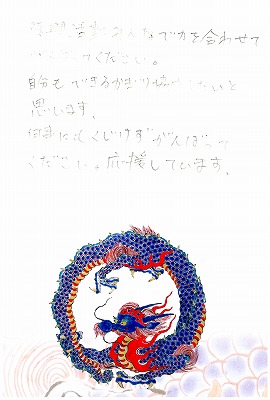 みんなで力を合わせて
ください。
自分もできるかぎり協力したいと
思います。
何事にもくじけずがんばって
ください。応援しています。